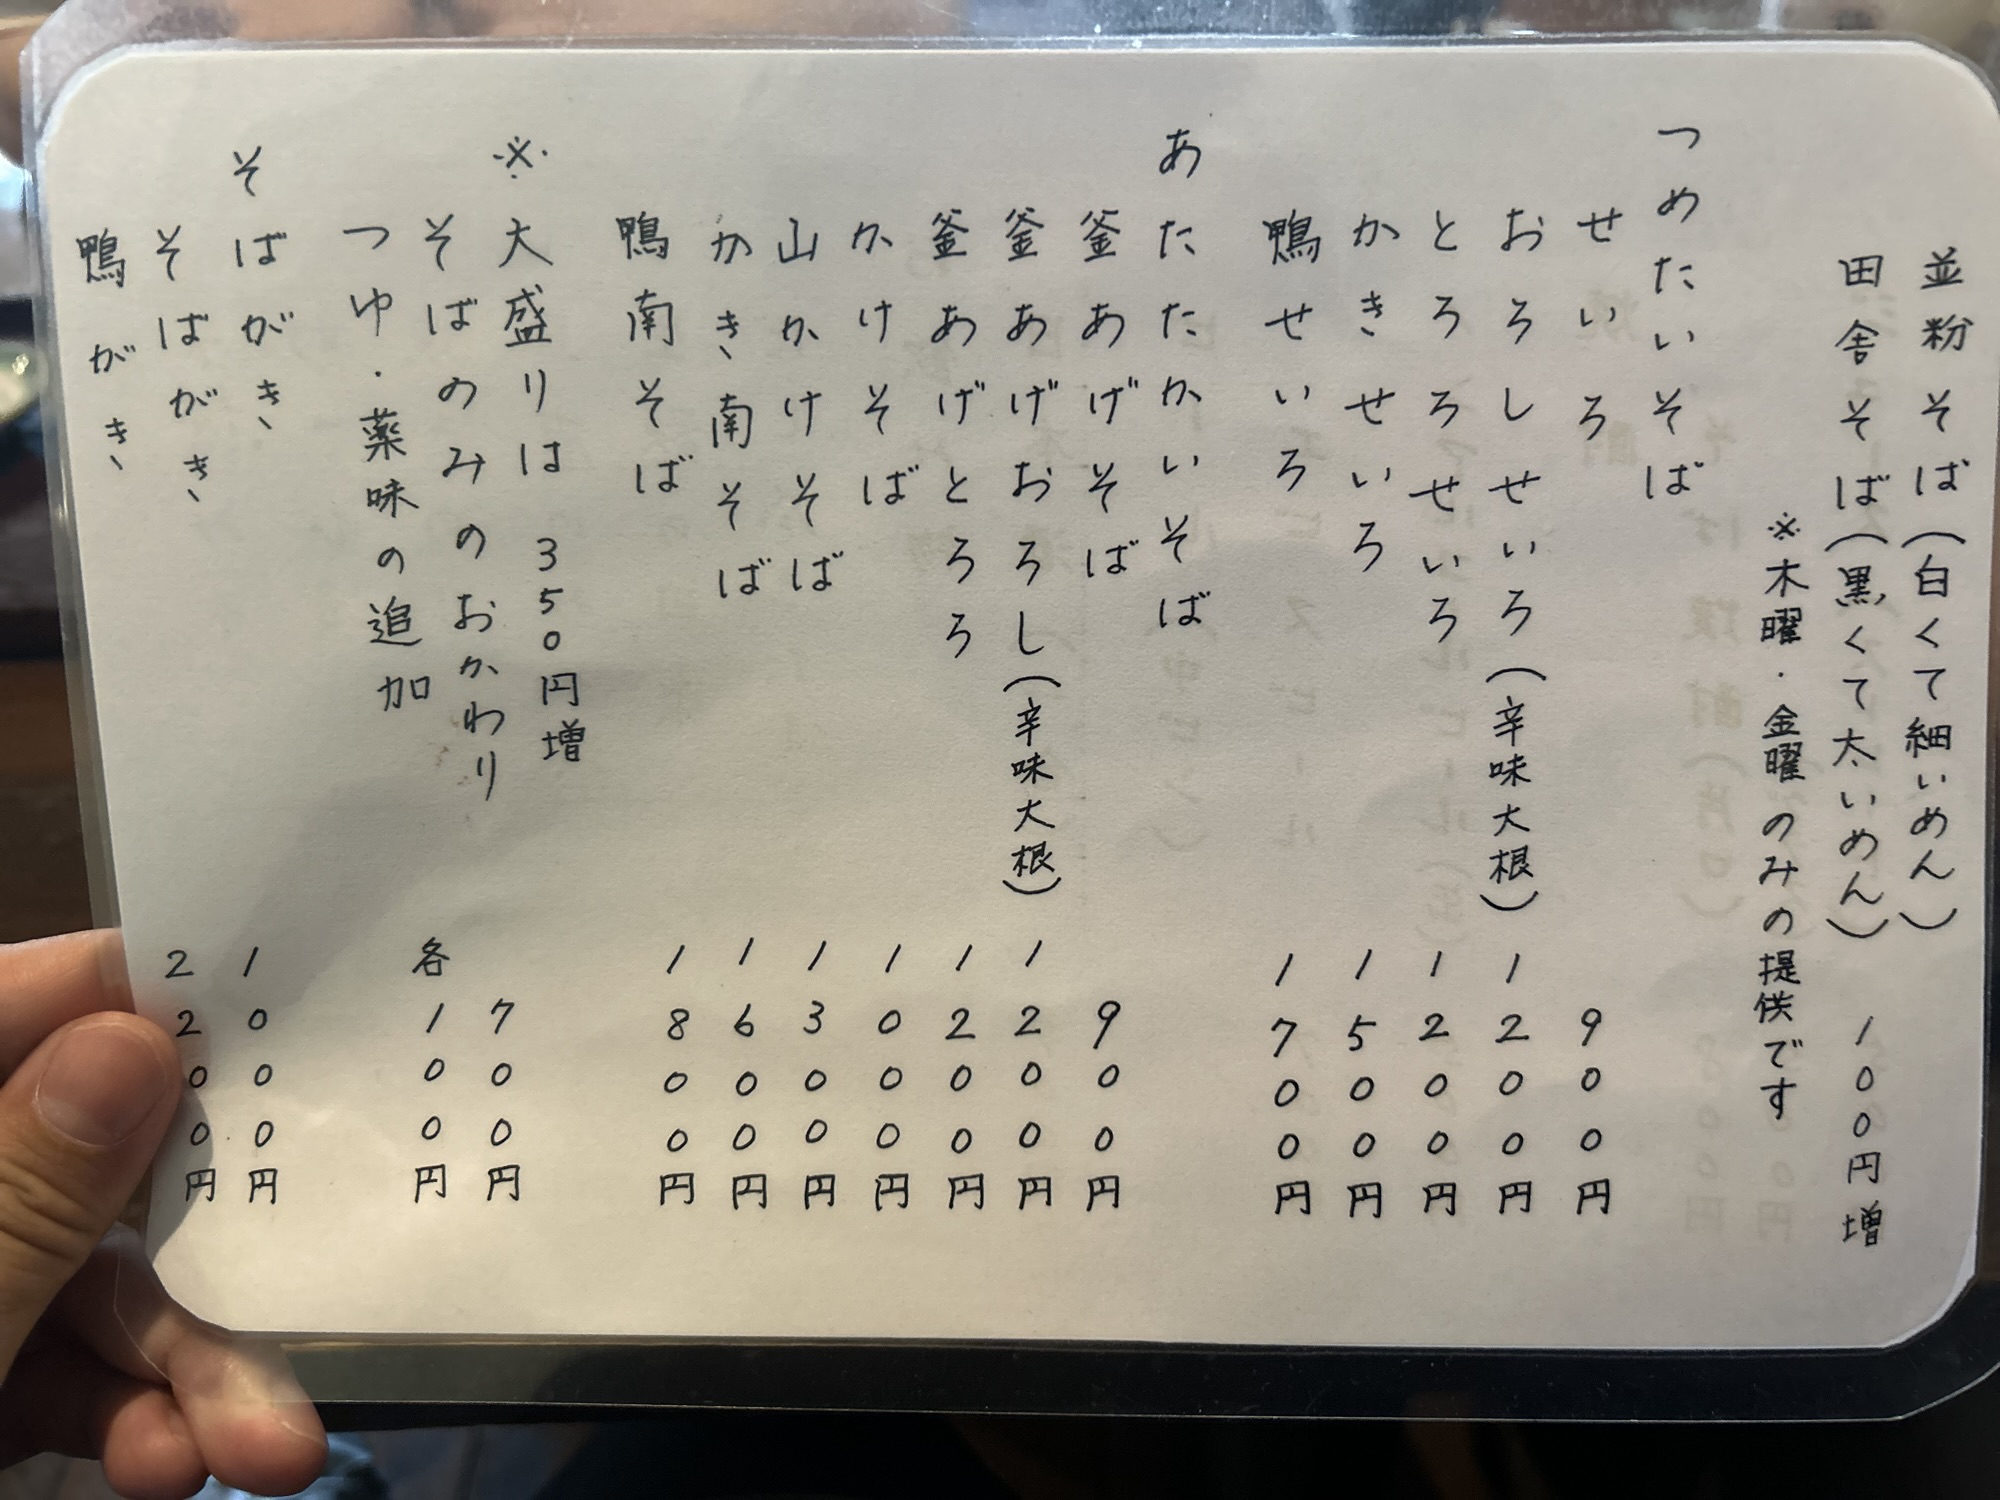 並粉そば(白くて細いめん)
田舎そば(黒くて太いめん) 100円増
※木曜・金曜のみの提供です
つめたいそば
せいろ 900円
おろしせいろ(辛味大根) 1200円
とろろせいろ 1200円
かきせいろ 1500円
鴨せいろ 1700円
あたたかいそば
釜あげそば 900円
釜あげおろし(辛味大根) 1200円
釜あげとろろ 1200円
かけそば 1000円
山かけそば 1300円
かき南そば 1600円
鴨南そば 1800円
※大盛りは 350円増
そばのみのおかわり 700円
つゆ・薬味の追加 各100円
そばがき
そばがき 1000円
鴨がき 2200円